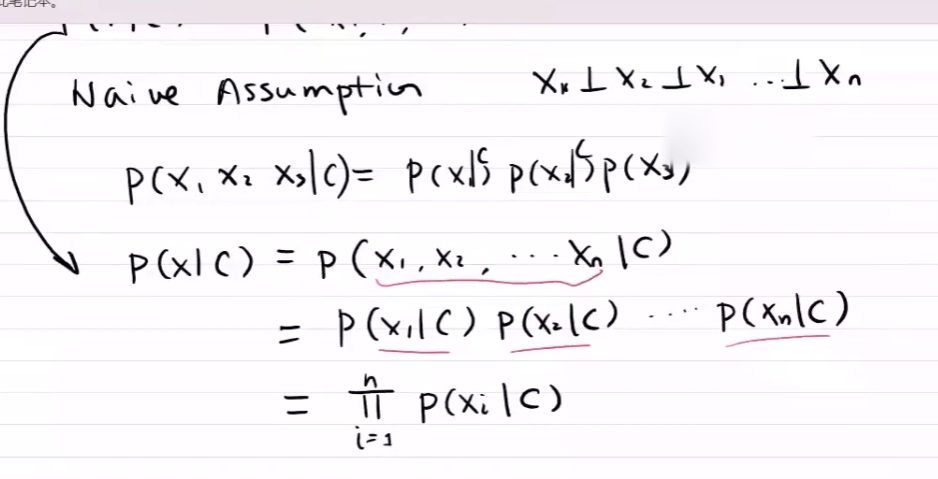 此笔记本。
Naive Assumption X₁ ⊥ X₂ ⊥ X₁ ... ⊥ Xₙ
P(X₁ X₂ X₃|C) = P(X|C) P(X₂|C) P(X₃)
P(X|C) = P(X₁, X₂, ... Xₙ|C)
= P(X₁|C) P(X₂|C) .... P(Xₙ|C)
= ∏ᵢ₌₁ⁿ P(Xᵢ|C)